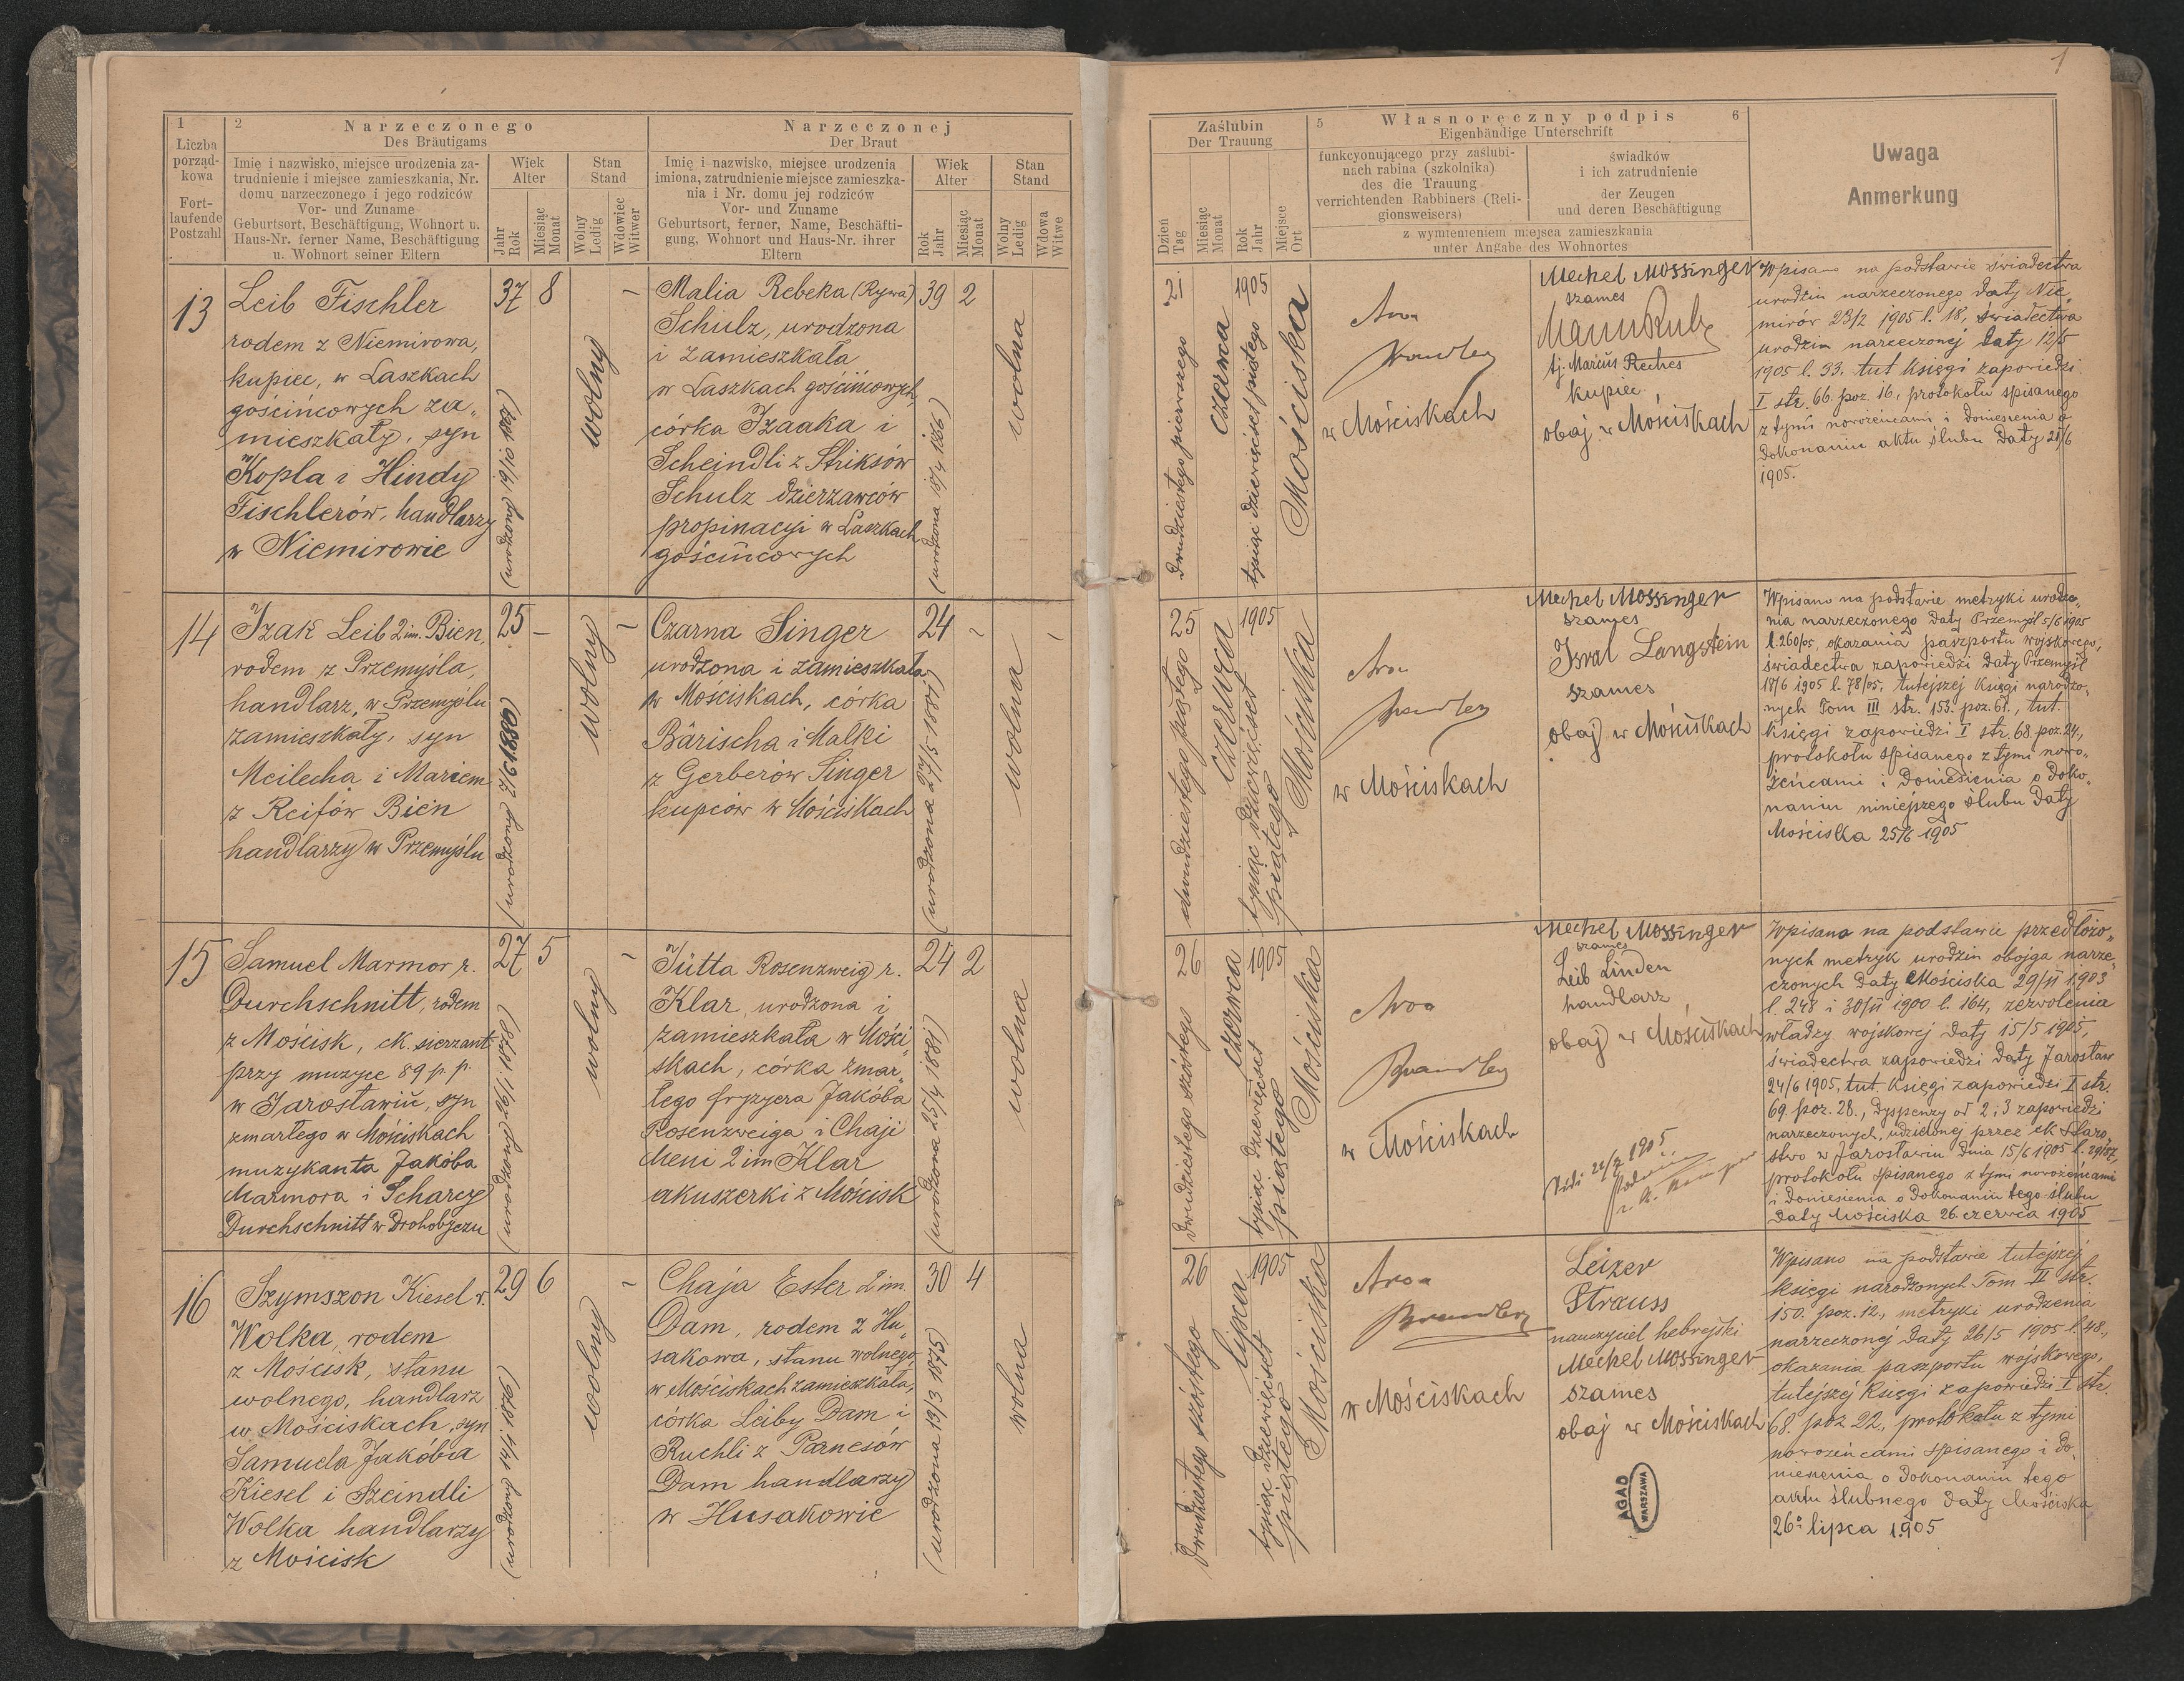 1
1
Liczba
porząd-
kowa
Fort-
laufende
Postzahl
2
Narzeczonego
Des Bräutigams
Imię i nazwisko, miejsce urodzenia za-
trudnienie i miejsce zamieszkania, Nr.
domu narzeczonego i jego rodziców
Vor- und Zuname
Geburtsort, Beschäftigung, Wohnort u.
Haus-Nr. ferner Name, Beschäftigung
u. Wohnort seiner Eltern
Wiek
Alter
Jahr
Rok
Miesiąc
Monat
Stan
Stand
Wolny
Ledig
Wdowiec
Witwer
Narzeczonej
Der Braut
Imię i nazwisko, miejsce urodzenia
imiona, zatrudnienie miejsce zamieszka-
nia i Nr. domu jej rodziców
Vor- und Zuname
Geburtsort, ferner, Name, Beschäfti-
gung, Wohnort und Haus-Nr. ihrer
Eltern
Wiek
Alter
Rok
Jahr
Miesiąc
Monat
Stan
Stand
Wolny
Ledig
Wdowa
Witwe
Zaślubin
Der Trauung
Dzień
Tag
Miesiąc
Monat
Rok
Jahr
Miejsce
Ort
5
Własnoręczny podpis
6
Eigenhändige Unterschrift
funkcyonującego przy zaślubi-
nach rabina (szkolnika)
des die Trauung
verrichtenden Rabbiners (Reli-
gionsweisers)
świadków
i ich zatrudnienie
der Zeugen
und deren Beschäftigung
z wymienieniem miejsca zamieszkania
unter Angabe des Wohnortes
Uwaga
Anmerkung
13
Leib Fischler
rodem z Niemirowa,
kupiec, w Laszkach
gościńcowych za„
mieszkały, syn
Kopla i Hindy
Fischlerów, handlarzy
w Niemirowie
37 8
(urodzony 19/10 1867)
wolny
–
Malia Rebeka (Rywa)
Schulz, urodzona
i zamieszkała
w Laszkach gościńcowych,
córka Izaaka i
Scheindli z Striksów
Schulz dzierzawców
propinacyi w Laszkach
gościńcowych
39 2
wolna
21
dwudziestego pierwszego
czerwca
1905
tysiąc dziewięćset piątego
Mościska
Aron
w Mościskach
Mechel Mossinger
szames
tj. Marcus Reches
kupiec
obaj w Mościskach
Wpisano na podstawie świadectwa
urodzin narzeczonego daty Nie„
mirów 23/2 1905 l. 18, świadectwa
urodzin narzeczonej daty 12/5
1905 l. 33. tut księgi zapowiedzi
I str. 66. poz 16, protokołu spisanego
z tymi nowożeńcami i doniesienia o
dokonaniu aktu ślubu daty 21/6
1905.
14
Izak Leib 2im. Bien,
rodem z Przemyśla,
handlarz, w Przemyślu
zamieszkały, syn
Meilecha i Mariem
z Reifów Bien
handlarzy w Przemyślu
25 –
(urodzony 7/6 1880)
wolny
–
Czarna Singer
urodzona i zamieszkała
w Mościskach, córka
Bärischa i Małki
z Gerberów Singer
kupców w Mościskach
24 –
(urodzona 27/5 1881)
wolna
–
25
dwudziestego piątego
Czerwca
1905
tysiąc dziewięćset
piątego
Mościska
Aron
w Mościskach
Mechel Mossinger
szames
Isral Langstein
szames
obaj w Mościskach
Wpisano na podstawie metryki urodze„
nia narzeczonego daty Przemyśl 5/6 1905
l. 260/05, okazania paszportu wojskowego,
świadectwa zapowiedzi daty Przemyśl
18/6 1905 l. 78/05, tutejszej księgi narodzo„
nych Tom III str. 153. poz. 61., tut.
księgi zapowiedzi I str. 68. poz. 24.,
protokołu spisanego z tymi nowo„
żeńcami i doniesienia o doko„
naniu niniejszego ślubu daty
Mościska 25/6 1905
15
Samuel Marmor r.
Durchschnitt, rodem
z Mościsk, ck. sierzant
przy muzyce 89 p. p.
w Jarosławiu, syn
zmarłego w Mościskach
muzykanta Jakóba
Marmora i Scharcze
Durchschnitt w Drohobyczu
27 5
(urodzony 26/1. 1878)
wolny
–
Jütta Rosenzweig r.
Klar, urodzona i
zamieszkała w Mości„
skach, córka zmar„
łego fryzyera Jakóba
Rosenzweiga i Chaji
Meni 2im Klar
akuszerki z Mościsk
24 2
(urodzona 25/4 1881)
wolna
26
dwudziestego szóstego
czerwca
1905
tysiąc dziewięćset
piątego
Mościska
Aron
Brandler
w Mościskach
Mechel Mossinger
szames
Leib Linden
handlarz,
obaj w Mościskach
Wpisano na podstawie przedłożo„
nych metryk urodzin obojga narze„
czonych daty Mościska 29/11 1903
l. 248 i 30/11 1900 l. 164, zezwolenia
władzy wojskowej daty 15/5 1905,
świadectwa zapowiedzi daty Jarosław
24/6 1905, tut księgi zapowiedzi I str.
69. poz. 28., dyspenzy od 2 i 3 zapowiedzi
narzeczonych, udzielonej przez ck Staro„
stwo w Jarosławiu dnia 15/6 1905
protokołu spisanego z tymi nowożeńcami
i doniesienia o dokonaniu tego ślubu
daty Mościska 26. czerwca 1905
16
Szymszon Kiesel r.
Wolka, rodem
z Mościsk, stanu
wolnego, handlarz
w Mościskach, syn
Samuela Jakóba
Kiesel i Szeindli
Wolka handlarzy
z Mościsk
29 6
(urodzony 14/1 1876)
wolny
–
Chaja Ester 2im.
Dam, rodem z Hu„
sakowa, stanu wolnego,
w Mościskach zamieszkała,
córka Leiby Dam i
Ruchli z Parnesów
Dam handlarzy
w Husakowie
30 4
(urodzona 13/3 1875)
wolna
26
dwudziestego szóstego
lipca
1905
tysiąc dziewięćset
piątego
Mościska
Aron
Brandler
w Mościskach
Leizer
Strauss
nauczyciel hebrejski
Mechel Mossinger
szames
obaj w Mościskach
AGAD
WARSZAWA
Wpisano na podstawie tutejszej
księgi narodzonych Tom II str.
150. poz. 12., metryki urodzenia
narzeczonej daty 26/5 1905 l. 48.,
okazania paszportu wojskowego,
tutejszej księgi zapowiedzi I str.
68. poz 22., protokołu z tymi
nowożeńcami spisanego i do„
niesienia o dokonaniu tego
aktu ślubnego daty Mościska
26go lipca 1905